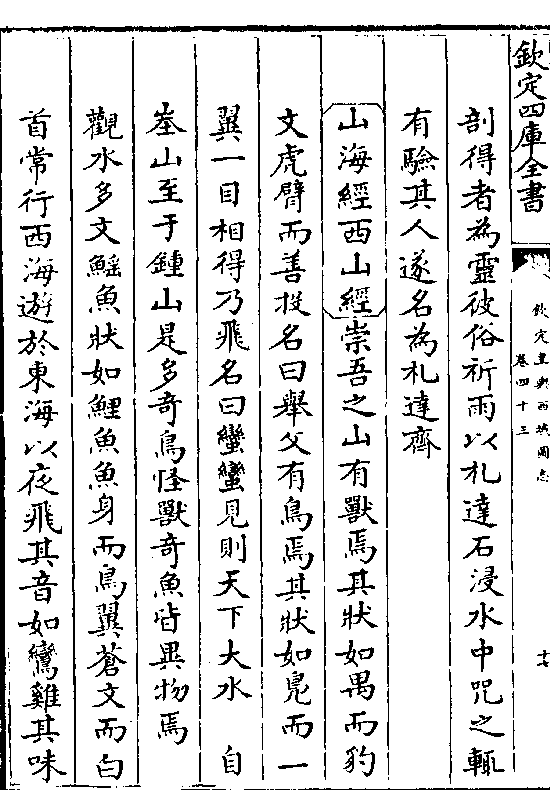 欽定四庫全書
欽定皇輿西域圖志
卷四十三
十七
剖得者為靈彼俗祈雨以札達石浸水中咒之輒
有驗其人遂名為札達齊
山海經西山經崇吾之山有獸焉其狀如禺而豹
文虎臂而善投名曰舉父有鳥焉其狀如鳧而一
翼一目相得乃飛名曰蠻蠻見則天下大水 自
峚山至于鍾山是多奇鳥怪獸奇魚皆異物焉
觀水多文鰩魚狀如鯉魚魚身而鳥翼蒼文而白
首常行西海遊於東海以夜飛其音如鸞雞其味